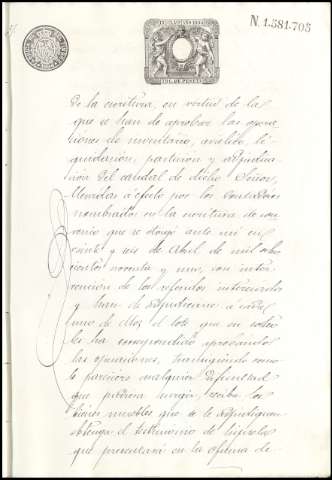 N. 1.581.705
De la escritura, en virtud de la
que se han de aprobar las opera-
ciones de inventario, avalúo, li-
quidación, particion y adjudica-
ción del caudal de dicho Señor,
llevadas á efecto por los Contadores
nombrados en la escritura de con-
venio que se otorgó ante mi en
veinte y seis de Abril de mil ocho
cientos noventa y uno, con inter-
vencion de los referidos interesados
y han de adjudicarse á cada
uno de ellos el lote que
les ha correspondido aprobando
las operaciones, como
le parecies cualquier dificultad
que pudiera surgir, reciba los
bienes muebles que se le adjudiquen
obtenga el testimonio de hijuela
que presentará en la oficina de